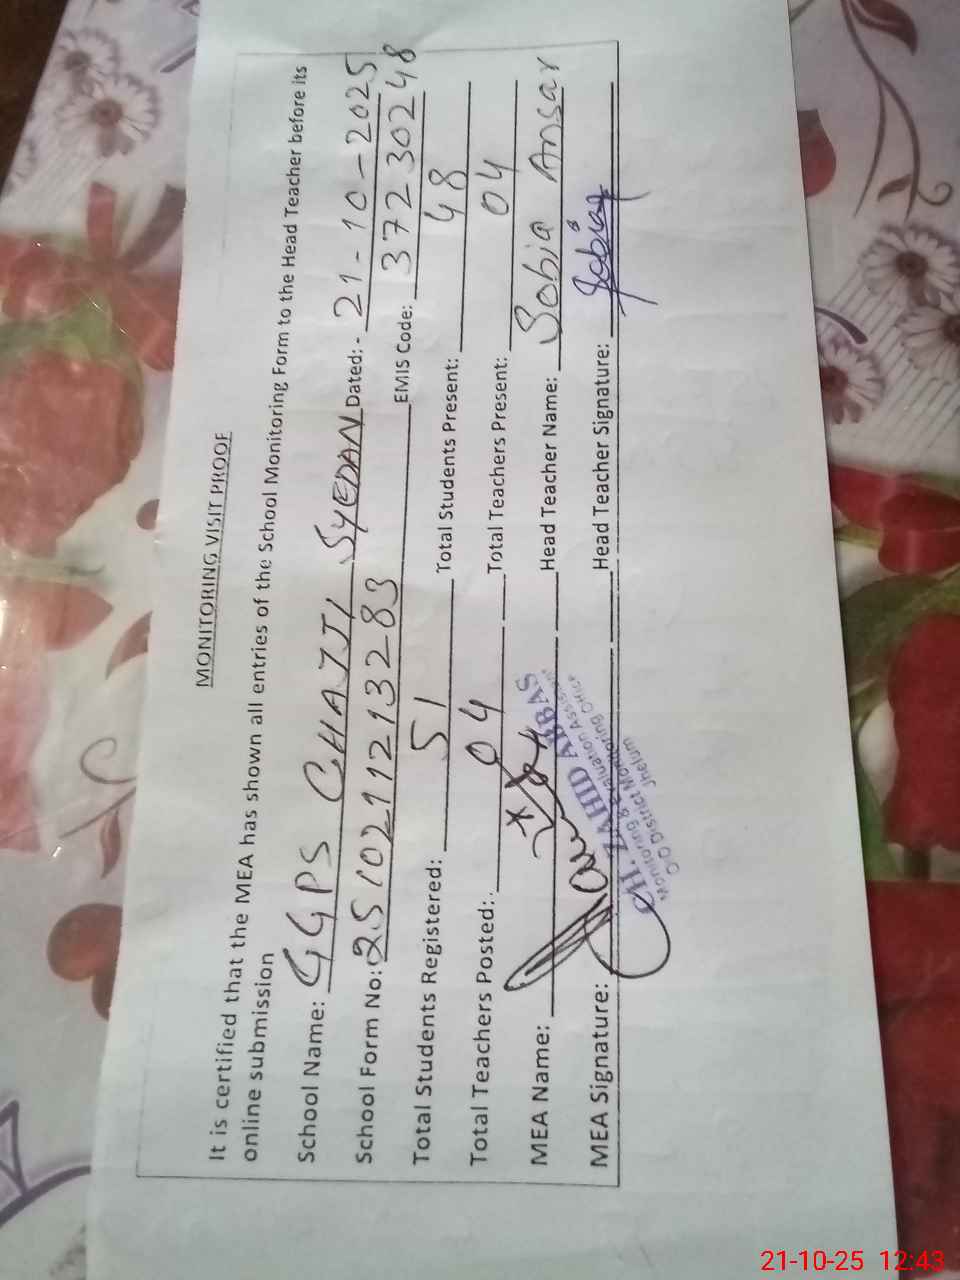 MONITORING VISIT PROOF
It is certified that the MEA has shown all entries of the School Monitoring Form to the Head Teacher before its
online submission
School Name: GGPS CHAJJI SYEDAN Dated:- 21-10-2025
School Form No: 2510211213283 EMIS Code: 37230248
Total Students Registered: 51 Total Students Present: 48
Total Teachers Posted:. 04 Total Teachers Present: 04
MEA Name: Head Teacher Name: Sobia Ansar
MEA Signature: Head Teacher Signature: Sobia
CH. ZAHID ABBAS
Monitoring & Evaluation Assistant
Monitoring Office
District Jhelum
21-10-25 12:43